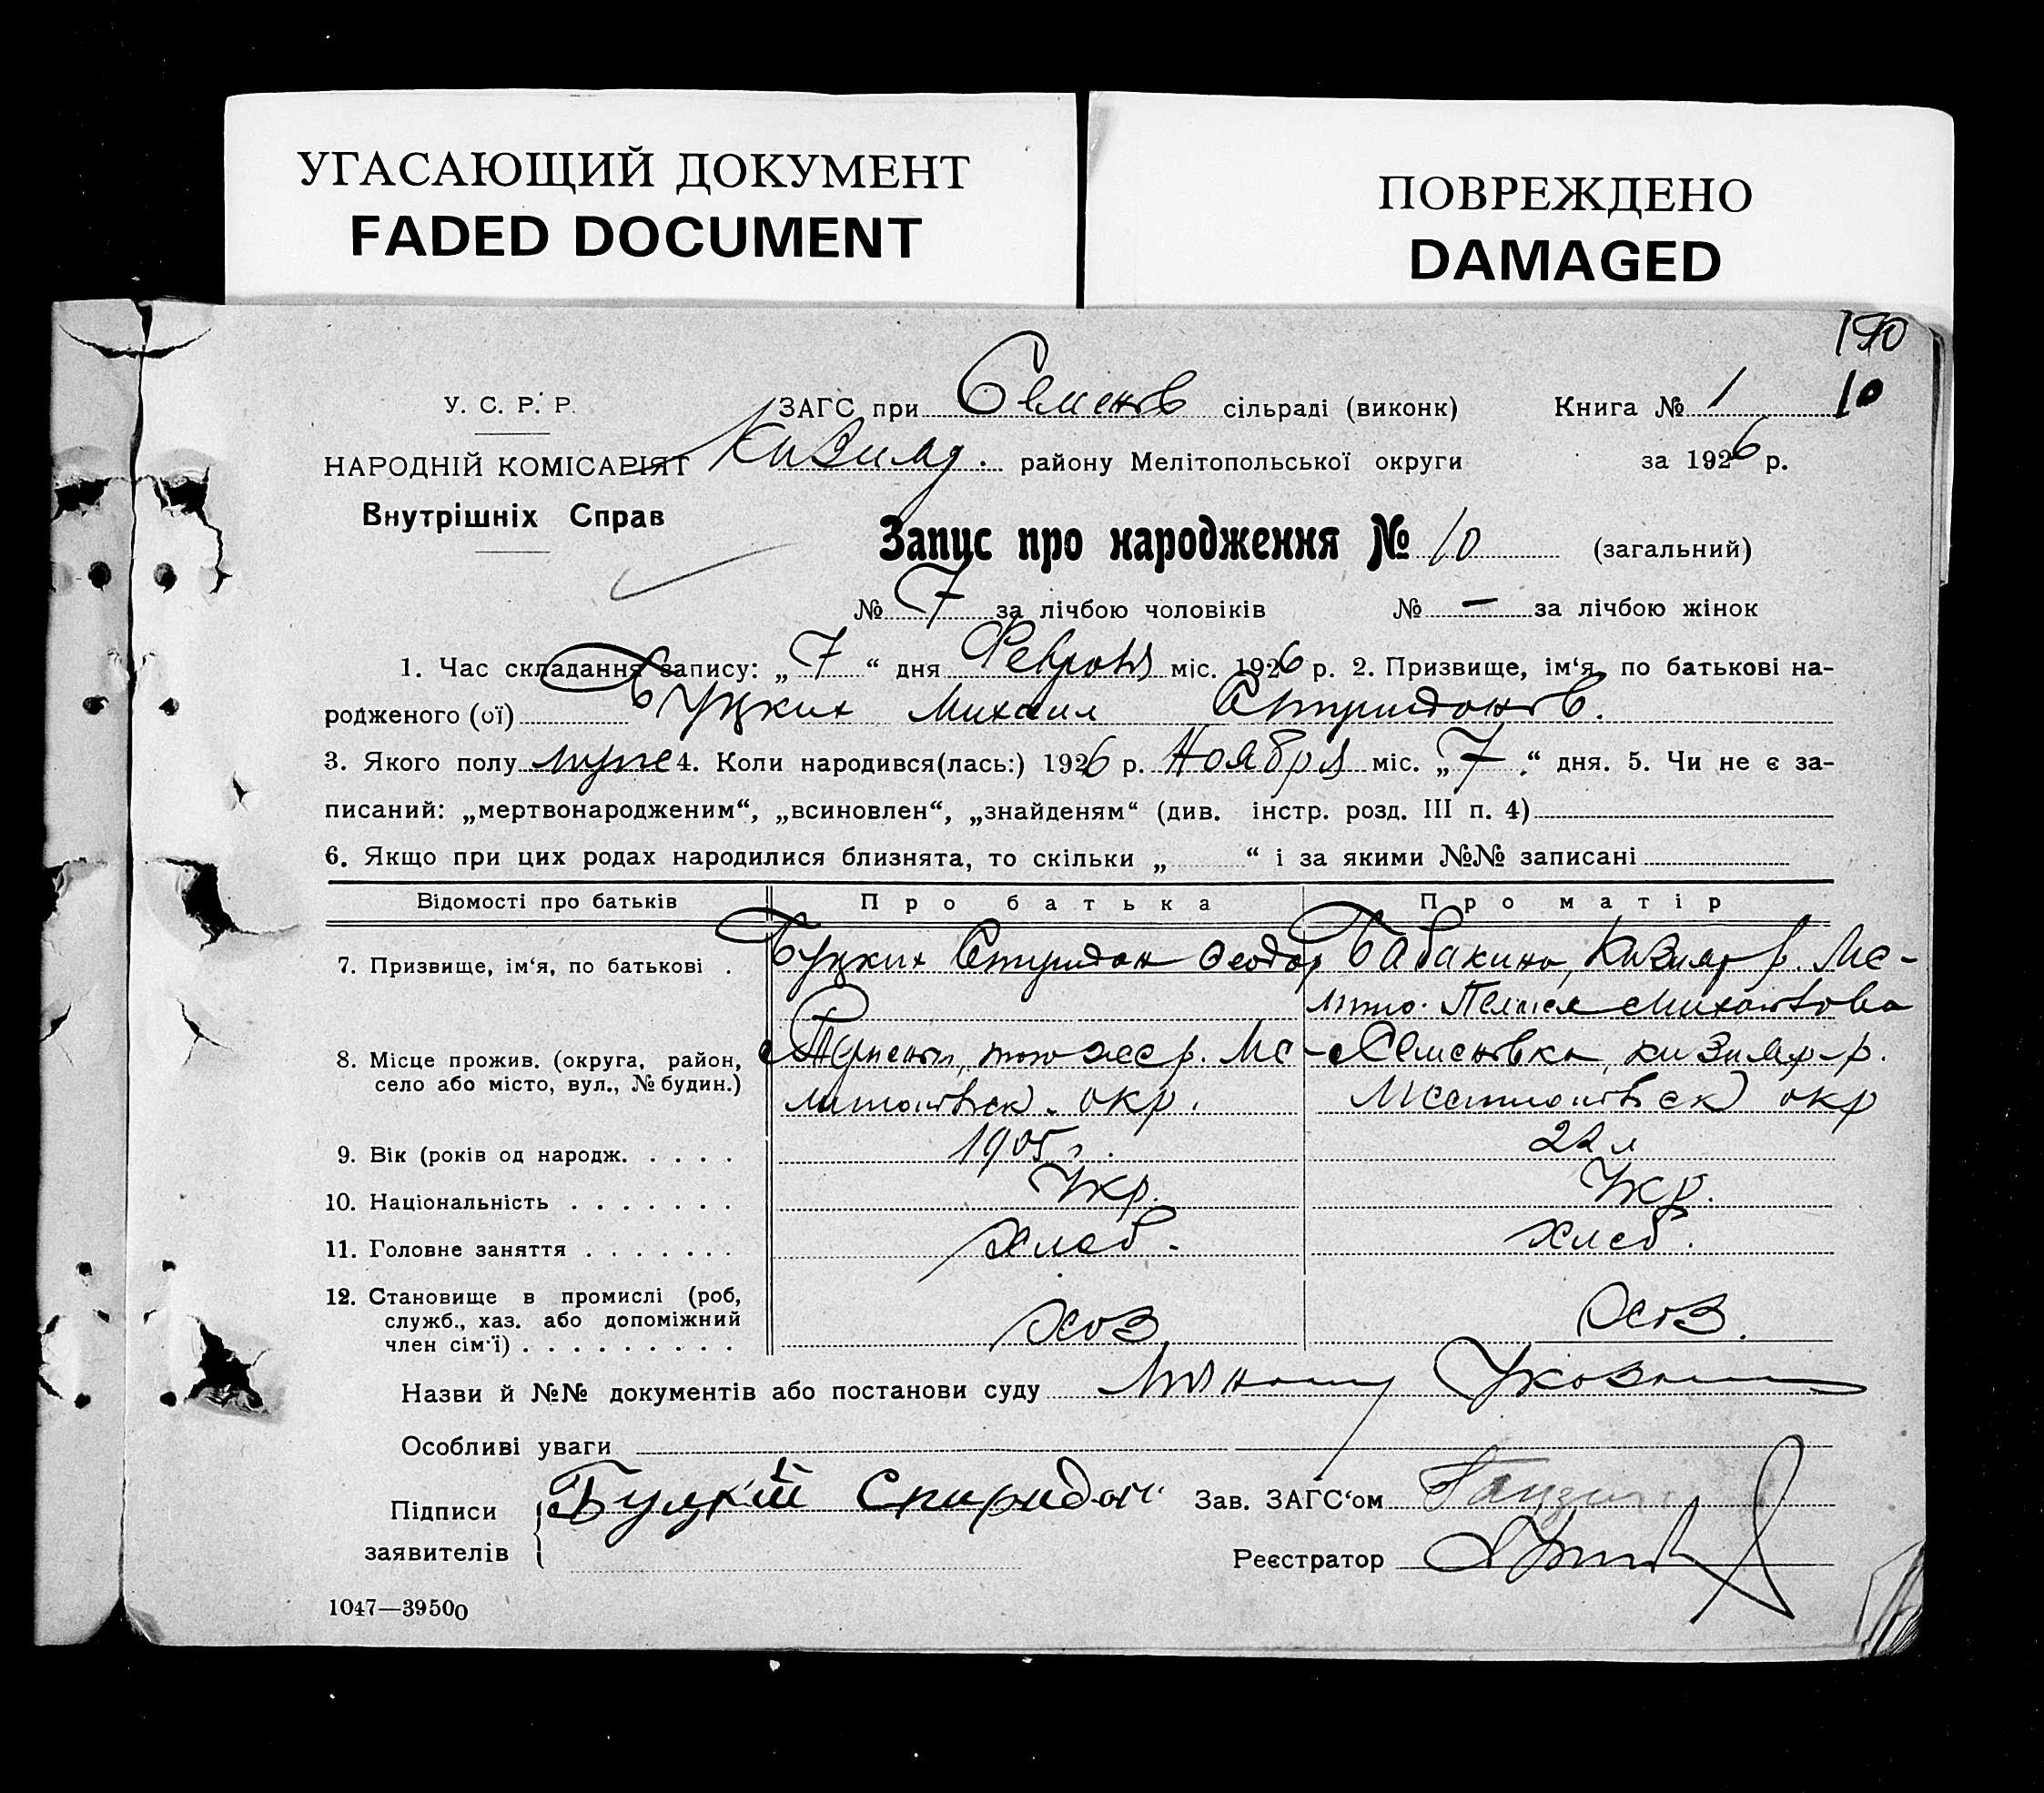 УГАСАЮЩИЙ ДОКУМЕНТ
FADED DOCUMENT
ПОВРЕЖДЕНО
DAMAGED
190
10
У. С. Р. Р.
НАРОДНІЙ КОМІСАРІЯТ
Внутрішніх Справ
ЗАГС при Семенов сільраді (виконк) Книга № 1
Кизияр. району Мелітопольської округи за 1926 р.
Запис про народження № 10 (загальний)
№ 7 за лічбою чоловіків № — за лічбою жінок
1. Час складання запису: „7“ дня Февроля міс. 1926 р. 2. Призвище, ім‘я, по батькові на-
родженого (ої) Буцких Михаил Спиридонов.
3. Якого полу муже 4. Коли народився(лась:) 1926 р. Ноября міс. „7“ дня. 5. Чи не є за-
писаний: „мертвонародженим“, „всиновлен“, „знайденям“ (див. інстр. розд. III п. 4)
6. Якщо при цих родах народилися близнята, то скільки „ “ і за якими №№ записані
Відомості про батьків Про батька Про матір
7. Призвище, ім‘я, по батькові . Буцких Спиридон Феодор Бабакина, Кизияр р. Ме-
8. Місце прожив. (округа, район, село або місто, вул., № будин.) Терпеньи, того же р. Ме- Семеновка, кизияр р.
окр. окр
9. Вік (років од народж. . . . . 1905 г. 22 л
10. Національність . . . . . . . Укр. Укр.
11. Головне заняття . . . . . . . хлеб. хлеб.
12. Становище в промислі (роб, служб., хаз. або допоміжний член сім‘ї) . . . . . . . . . хоз хоз.
Назви й №№ документів або постанови суду
Особливі уваги
Підписи заявителів Буцкій Спиридон Зав. ЗАГС‘ом
Реєстратор
1047—39500